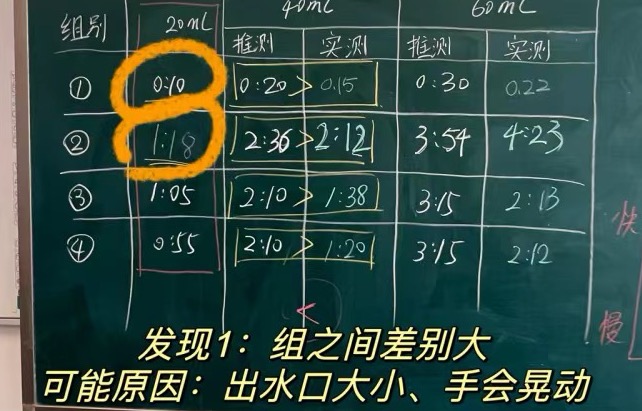 组别 20mL 40mL 60mL
推测 实测 推测 实测
① 0:10 0:20 > 0.15 0:30 0.22
② 1:18 2:36 > 2:12 3:54 4:23
③ 1:05 2:10 > 1:38 3:15 2:13
④ 0:55 2:10 > 1:20 3:15 2:12
<
快
慢
发现1：组之间差别大
可能原因：出水口大小、手会晃动